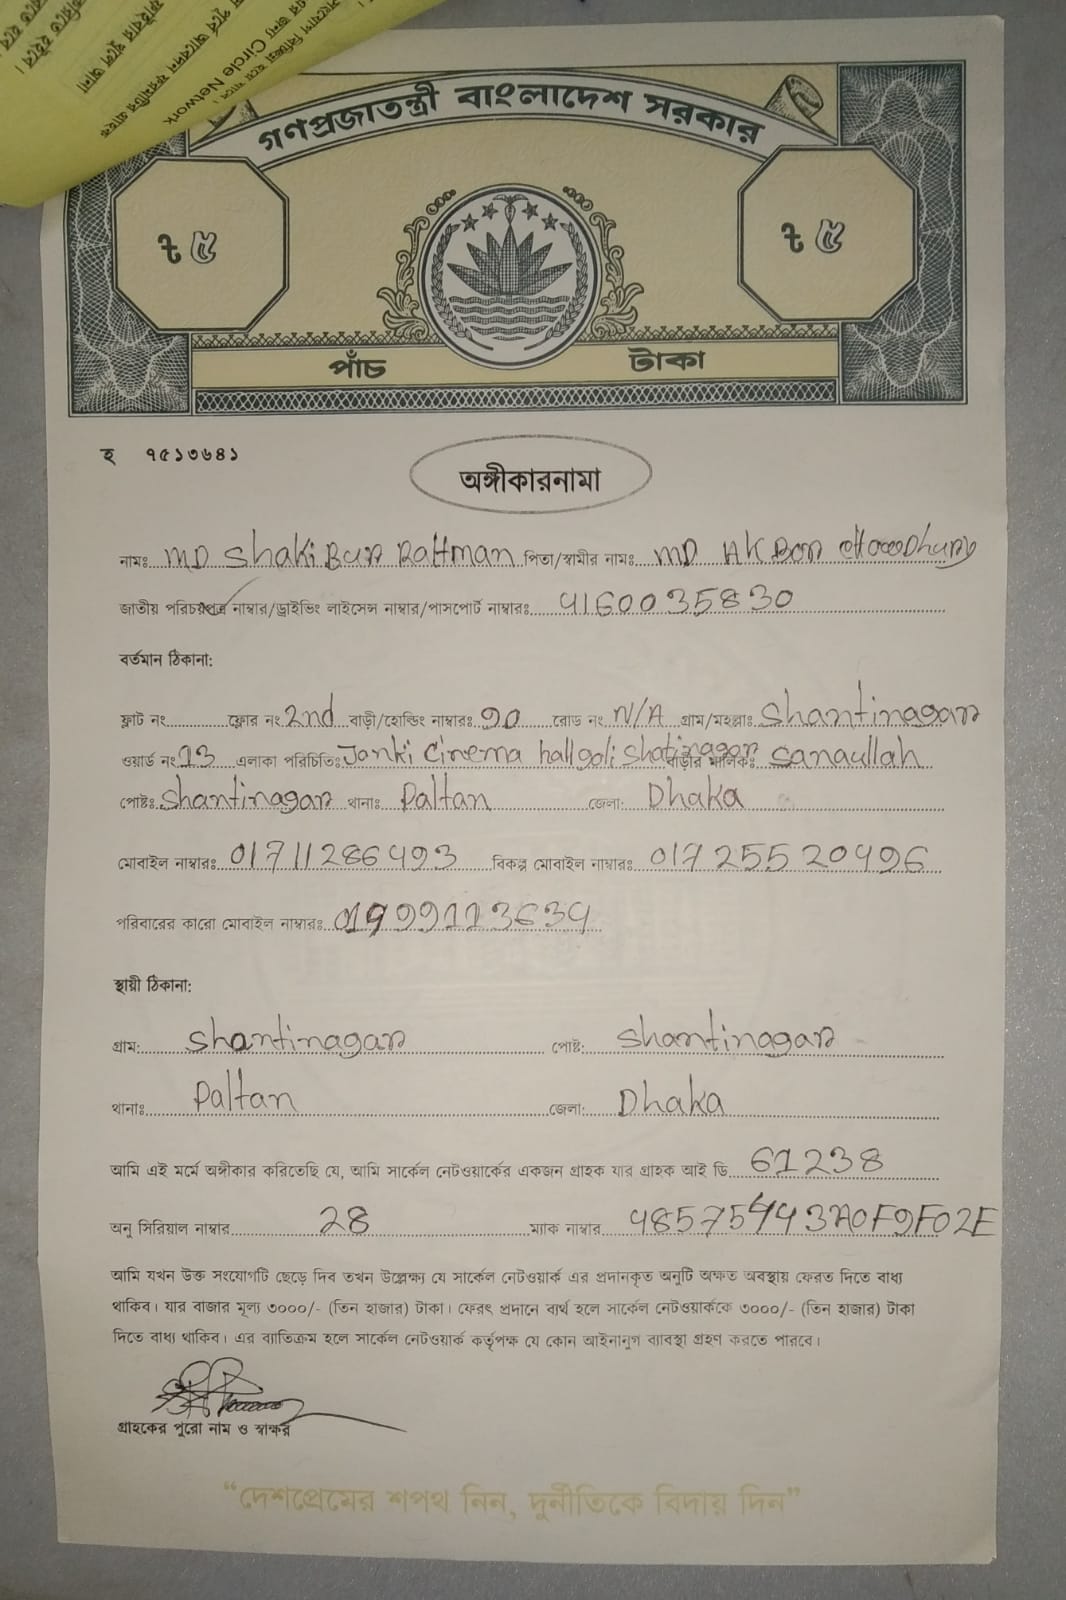 গণপ্রজাতন্ত্রী বাংলাদেশ সরকার
৳ ৫ ৳ ৫
পাঁচ টাকা
হ ৭৫১৩৬৪১
অঙ্গীকারনামা
নামঃ MD Shakibur Rahman পিতা/স্বামীর নামঃ MD AK Bor Chowdhury
জাতীয় পরিচয়পত্র নাম্বার/ড্রাইভিং লাইসেন্স নাম্বার/পাসপোর্ট নাম্বারঃ 4160035830
বর্তমান ঠিকানা:
ফ্লাট নং ফ্লোর নং 2nd বাড়ী/হোল্ডিং নাম্বারঃ রোড নং N/A গ্রাম/মহল্লাঃ Shantinagar
ওয়ার্ড নং 13 এলাকা পরিচিতিঃ Jonki Cinema hall goli Shatinagar বাড়ীর মালিকঃ Sanaullah
পোষ্টঃ Shantinagar থানাঃ Paltan জেলা: Dhaka
মোবাইল নাম্বারঃ 01711286493 বিকল্প মোবাইল নাম্বারঃ 01725520496
পরিবারের কারো মোবাইল নাম্বারঃ 01999113634
স্থায়ী ঠিকানা:
গ্রাম: Shantinagar পোষ্ট: Shantinagar
থানাঃ Paltan জেলা: Dhaka
আমি এই মর্মে অঙ্গীকার করিতেছি যে, আমি সার্কেল নেটওয়ার্কের একজন গ্রাহক যার গ্রাহক আই ডি 61238
অনু সিরিয়াল নাম্বার 28 ম্যাক নাম্বার 48575443A0F9F02E
আমি যখন উক্ত সংযোগটি ছেড়ে দিব তখন উল্লেক্ষ্য যে সার্কেল নেটওয়ার্ক এর প্রদানকৃত অনুটি অক্ষত অবস্থায় ফেরত দিতে বাধ্য
থাকিব। যার বাজার মূল্য ৩০০০/- (তিন হাজার) টাকা। ফেরৎ প্রদানে ব্যর্থ হলে সার্কেল নেটওয়ার্ককে ৩০০০/- (তিন হাজার) টাকা
দিতে বাধ্য থাকিব। এর ব্যাতিক্রম হলে সার্কেল নেটওয়ার্ক কর্তৃপক্ষ যে কোন আইনানুগ ব্যাবস্থা গ্রহণ করতে পারবে।
গ্রাহকের পুরো নাম ও স্বাক্ষর
“দেশপ্রেমের শপথ নিন, দুর্নীতিকে বিদায় দিন”
Circle Network